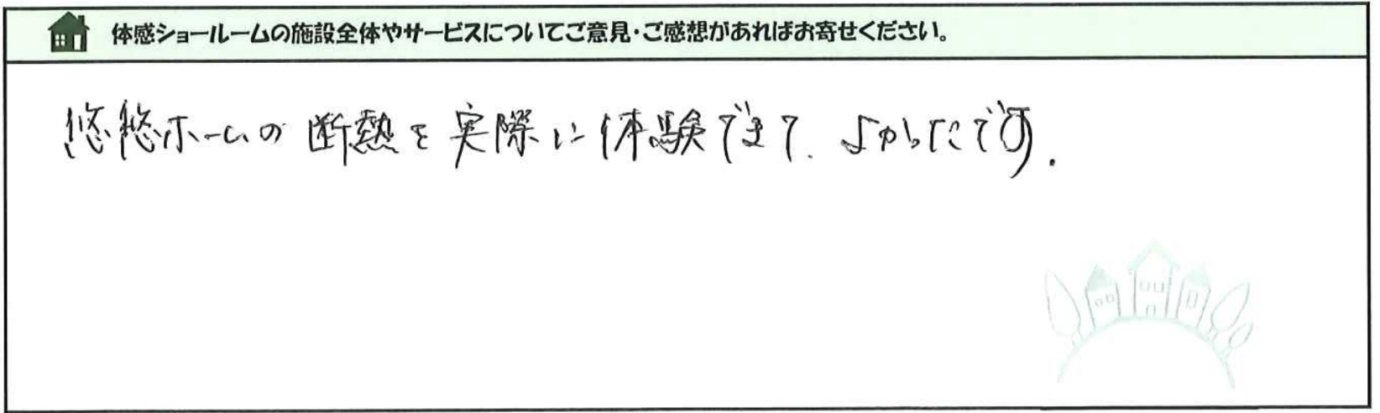 体感ショールームの施設全体やサービスについてご意見・ご感想があればお寄せください。
悠悠ホームの断熱を実際に体験できて、よかったです.